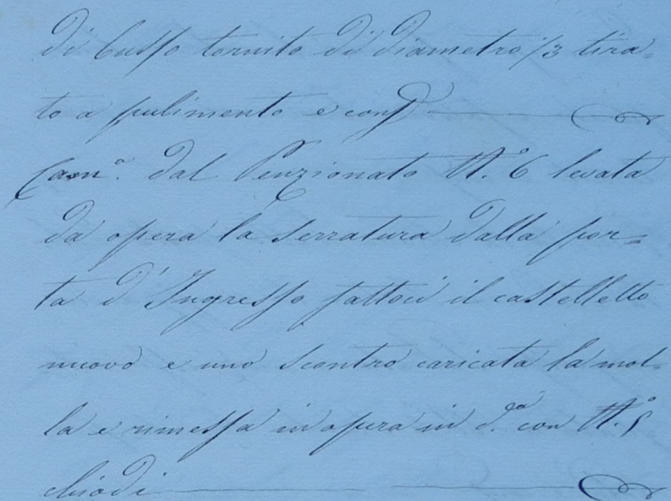 di busso tornito di diametro /3 tira=
to a pulimento e
Cam.ª dal Penzionato N.º 6 levata
da opera la serratura dalla por=
ta d'Ingresso fattoci il castelletto
nuovo e uno scontro caricata la mol=
la e rimessa in opera in d.ª con N.º 5
chiodi